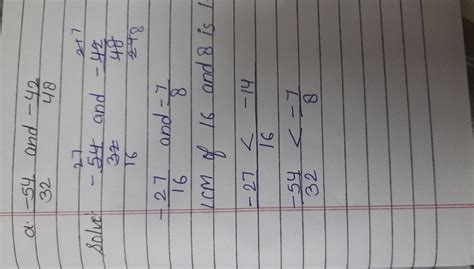 a. -54/32 and -42/48
Solve: 27 21 7
-54/32 and -42/48
16 24 8
-27/16 and -7/8
LCM of 16 and 8 is
-27 < -14
16
-54/32 < -7/8